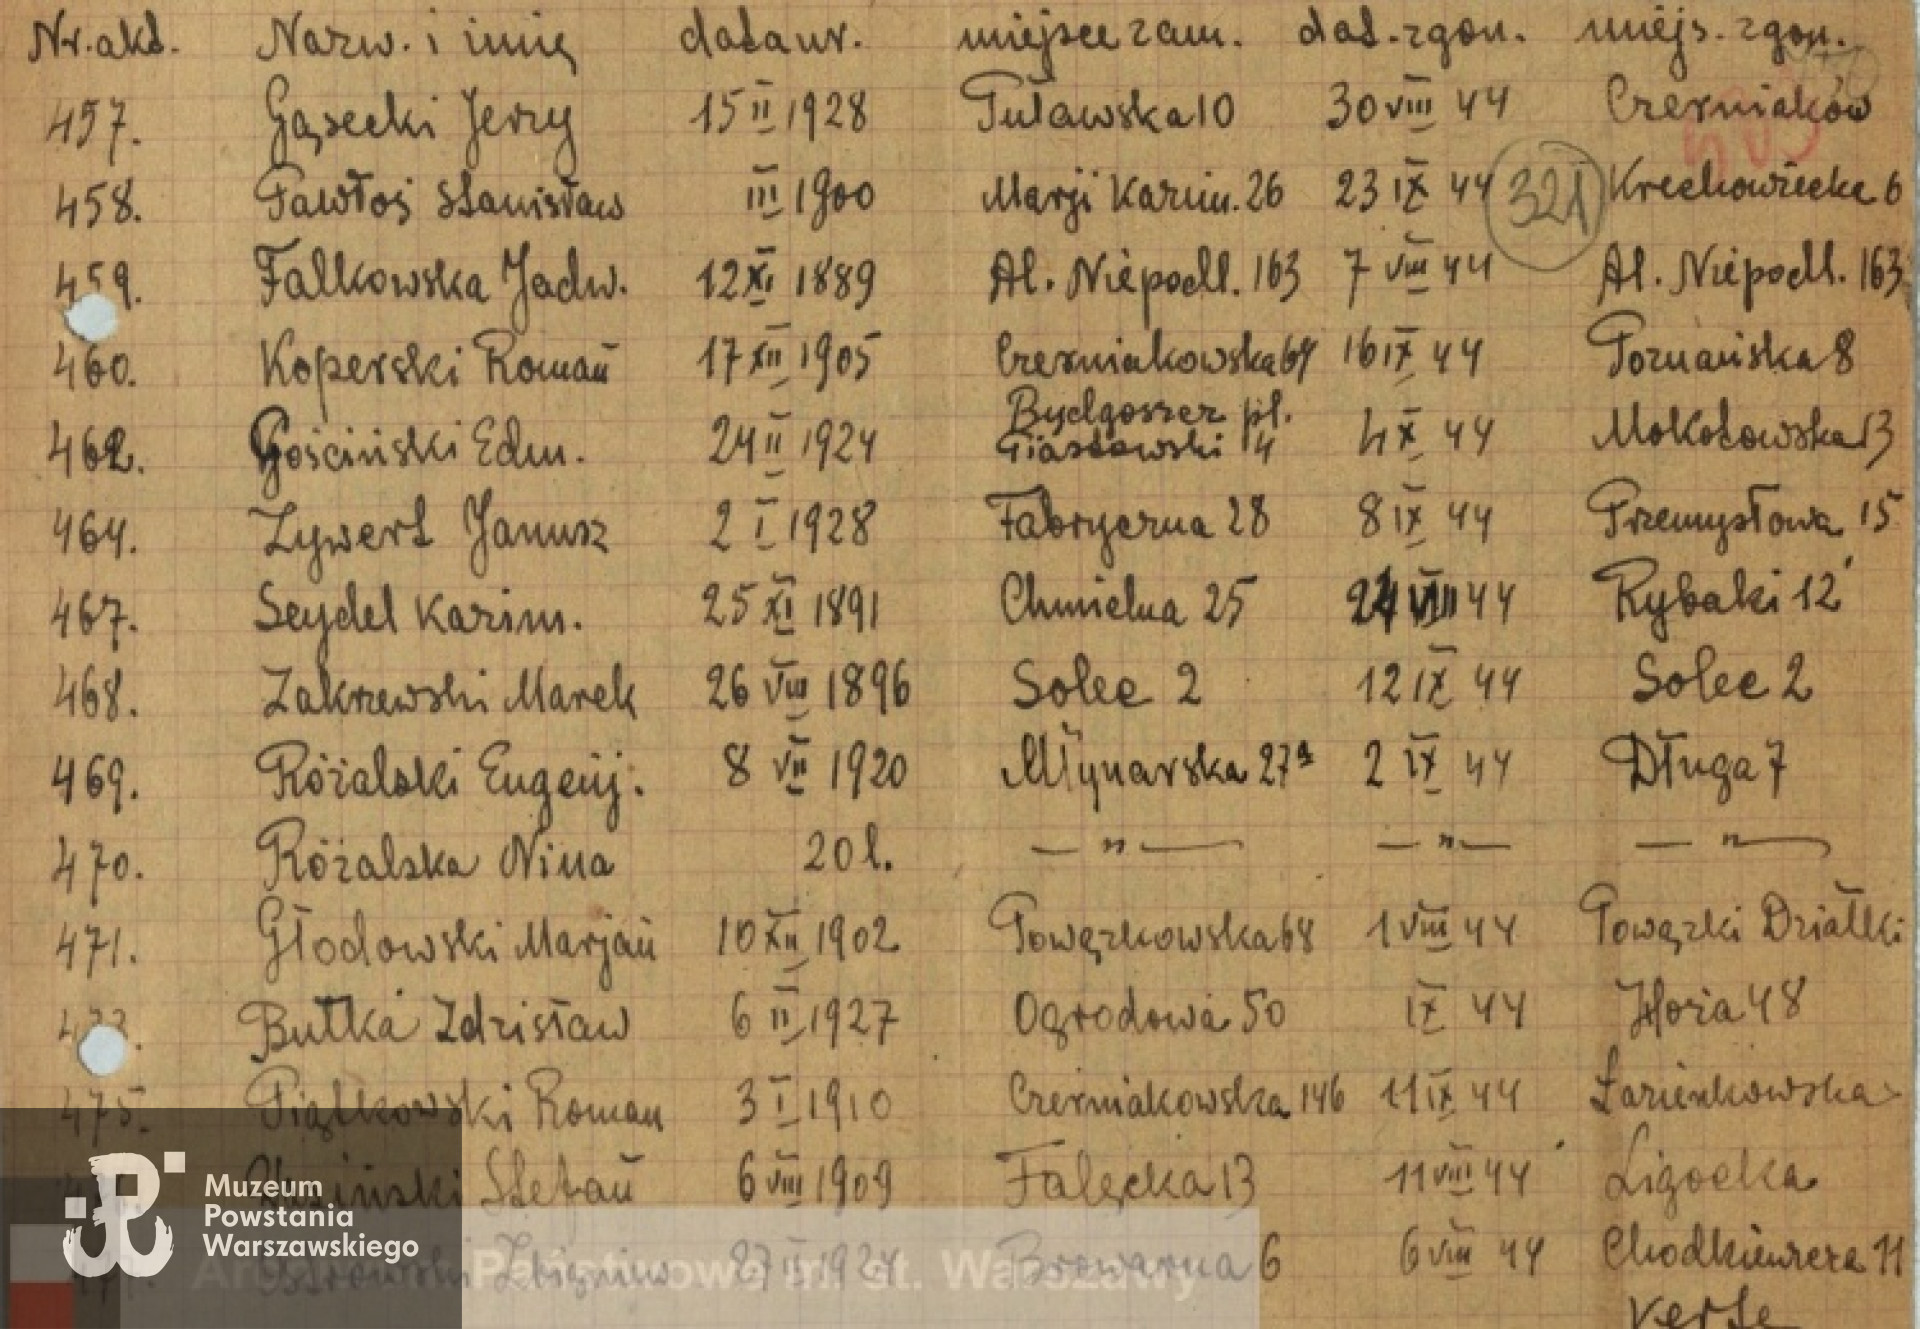 Nr. akt. Nazw. i imię data ur. miejsce zam. dat. zgon. miejs. zgon.
457. Gąsecki Jerzy 15 II 1928 Puławska 10 30 VIII 44 Czerniaków
458. Pawłoś Stanisław III 1900 Marji Kazim. 26 23 IX 44 321 Krechowiecka 6
459. Falkowska Jadw. 12 XI 1889 Al. Niepodl. 163 7 VIII 44 Al. Niepodl. 163
460. Koperski Roman 17 XII 1905 Czerniakowska 64 16 IX 44 Poznańska 8
Bydgoszcz pl.
462. Gościński Edm. 24 II 1924 Piastowski 14 4 X 44 Mokotowska 13
464. Zywert Janusz 2 I 1928 Fabryczna 28 8 IX 44 Przemysłowa 15
467. Seydel Kazim. 25 XI 1891 Chmielna 25 24 VIII 44 Rybaki 12
468. Zakrzewski Marek 26 VIII 1896 Solec 2 12 IX 44 Solec 2
469. Różalski Eugenj. 8 VII 1920 Młynarska 27a 2 IX 44 Długa 7
470. Różalska Nina 20 l. — „ — — „ — — „ —
471. Głodowski Marjan 10 XII 1902 Powązkowska 68 1 VIII 44 Powązki Działki
Butka Zdzisław 6 II 1927 Ogrodowa 50 IX 44 Hoża 48
475. Piątkowski Roman 3 I 1910 Czerniakowska 146 11 IX 44 Łazienkowska
Stefan 6 VIII 1909 Falęcka 13 11 VIII 44 Ligocka
Ostrowski Zbigniew 27 II 1924 Browarna 6 6 VIII 44 Chodkiewicza 11
verte
Muzeum
Powstania
Warszawskiego
Państwowe m. st. Warszawy